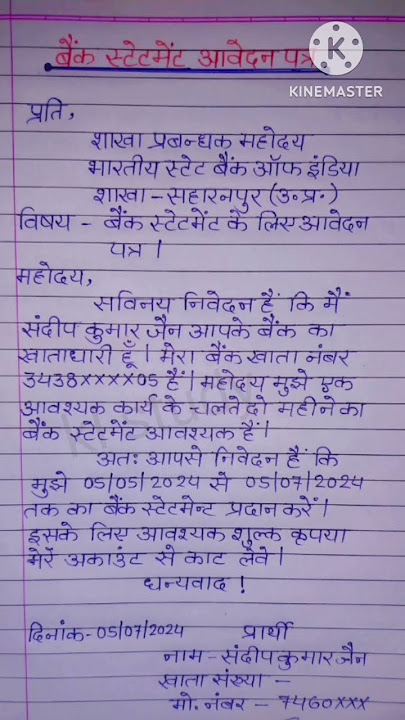 बैंक स्टेटमेंट आवेदन पत्र
K
KINEMASTER
प्रति,
शाखा प्रबन्धक महोदय
भारतीय स्टेट बैंक ऑफ इंडिया
शाखा - सहारनपुर (उ.प्र.)
विषय - बैंक स्टेटमेंट के लिए आवेदन
पत्र ।
महोदय,
सविनय निवेदन हैं कि मैं
संदीप कुमार जैन आपके बैंक का
खाताधारी हूँ । मेरा बैंक खाता नंबर
3438xxxx05 हैं । महोदय मुझे एक
आवश्यक कार्य के चलते दो महीने का
बैंक स्टेटमेंट आवश्यक हैं ।
अतः आपसे निवेदन हैं कि
मुझे 05/05/2024 से 05/07/2024
तक का बैंक स्टेटमेन्ट प्रदान करें ।
इसके लिए आवश्यक शुल्क कृपया
मेरें अकाउंट से काट लेवे ।
धन्यवाद !
दिनांक - 05/07/2024 प्रार्थी
नाम - संदीप कुमार जैन
खाता संख्या -
मो. नंबर - 7460xxx